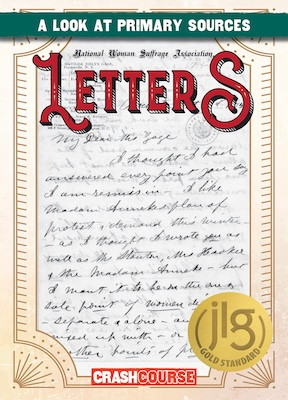 A LOOK AT PRIMARY SOURCES
National Woman Suffrage Association
MATILDA JOSLYN GAGE,
LETTERS
My Dear Mrs Gage
I thought I had
answered every point you say
I am remiss in. I like
Madam Anneke's plan of
protest & demand this winter
- as I thought I wrote you as
well as Mrs Stanton, Mrs Hooker
& the Madam Anneke - but
I want it to be on the one &
sole point of women
separate & alone - and
mixed up with - or
other points of
jlg
GOLD STANDARD
CRASHCOURSE